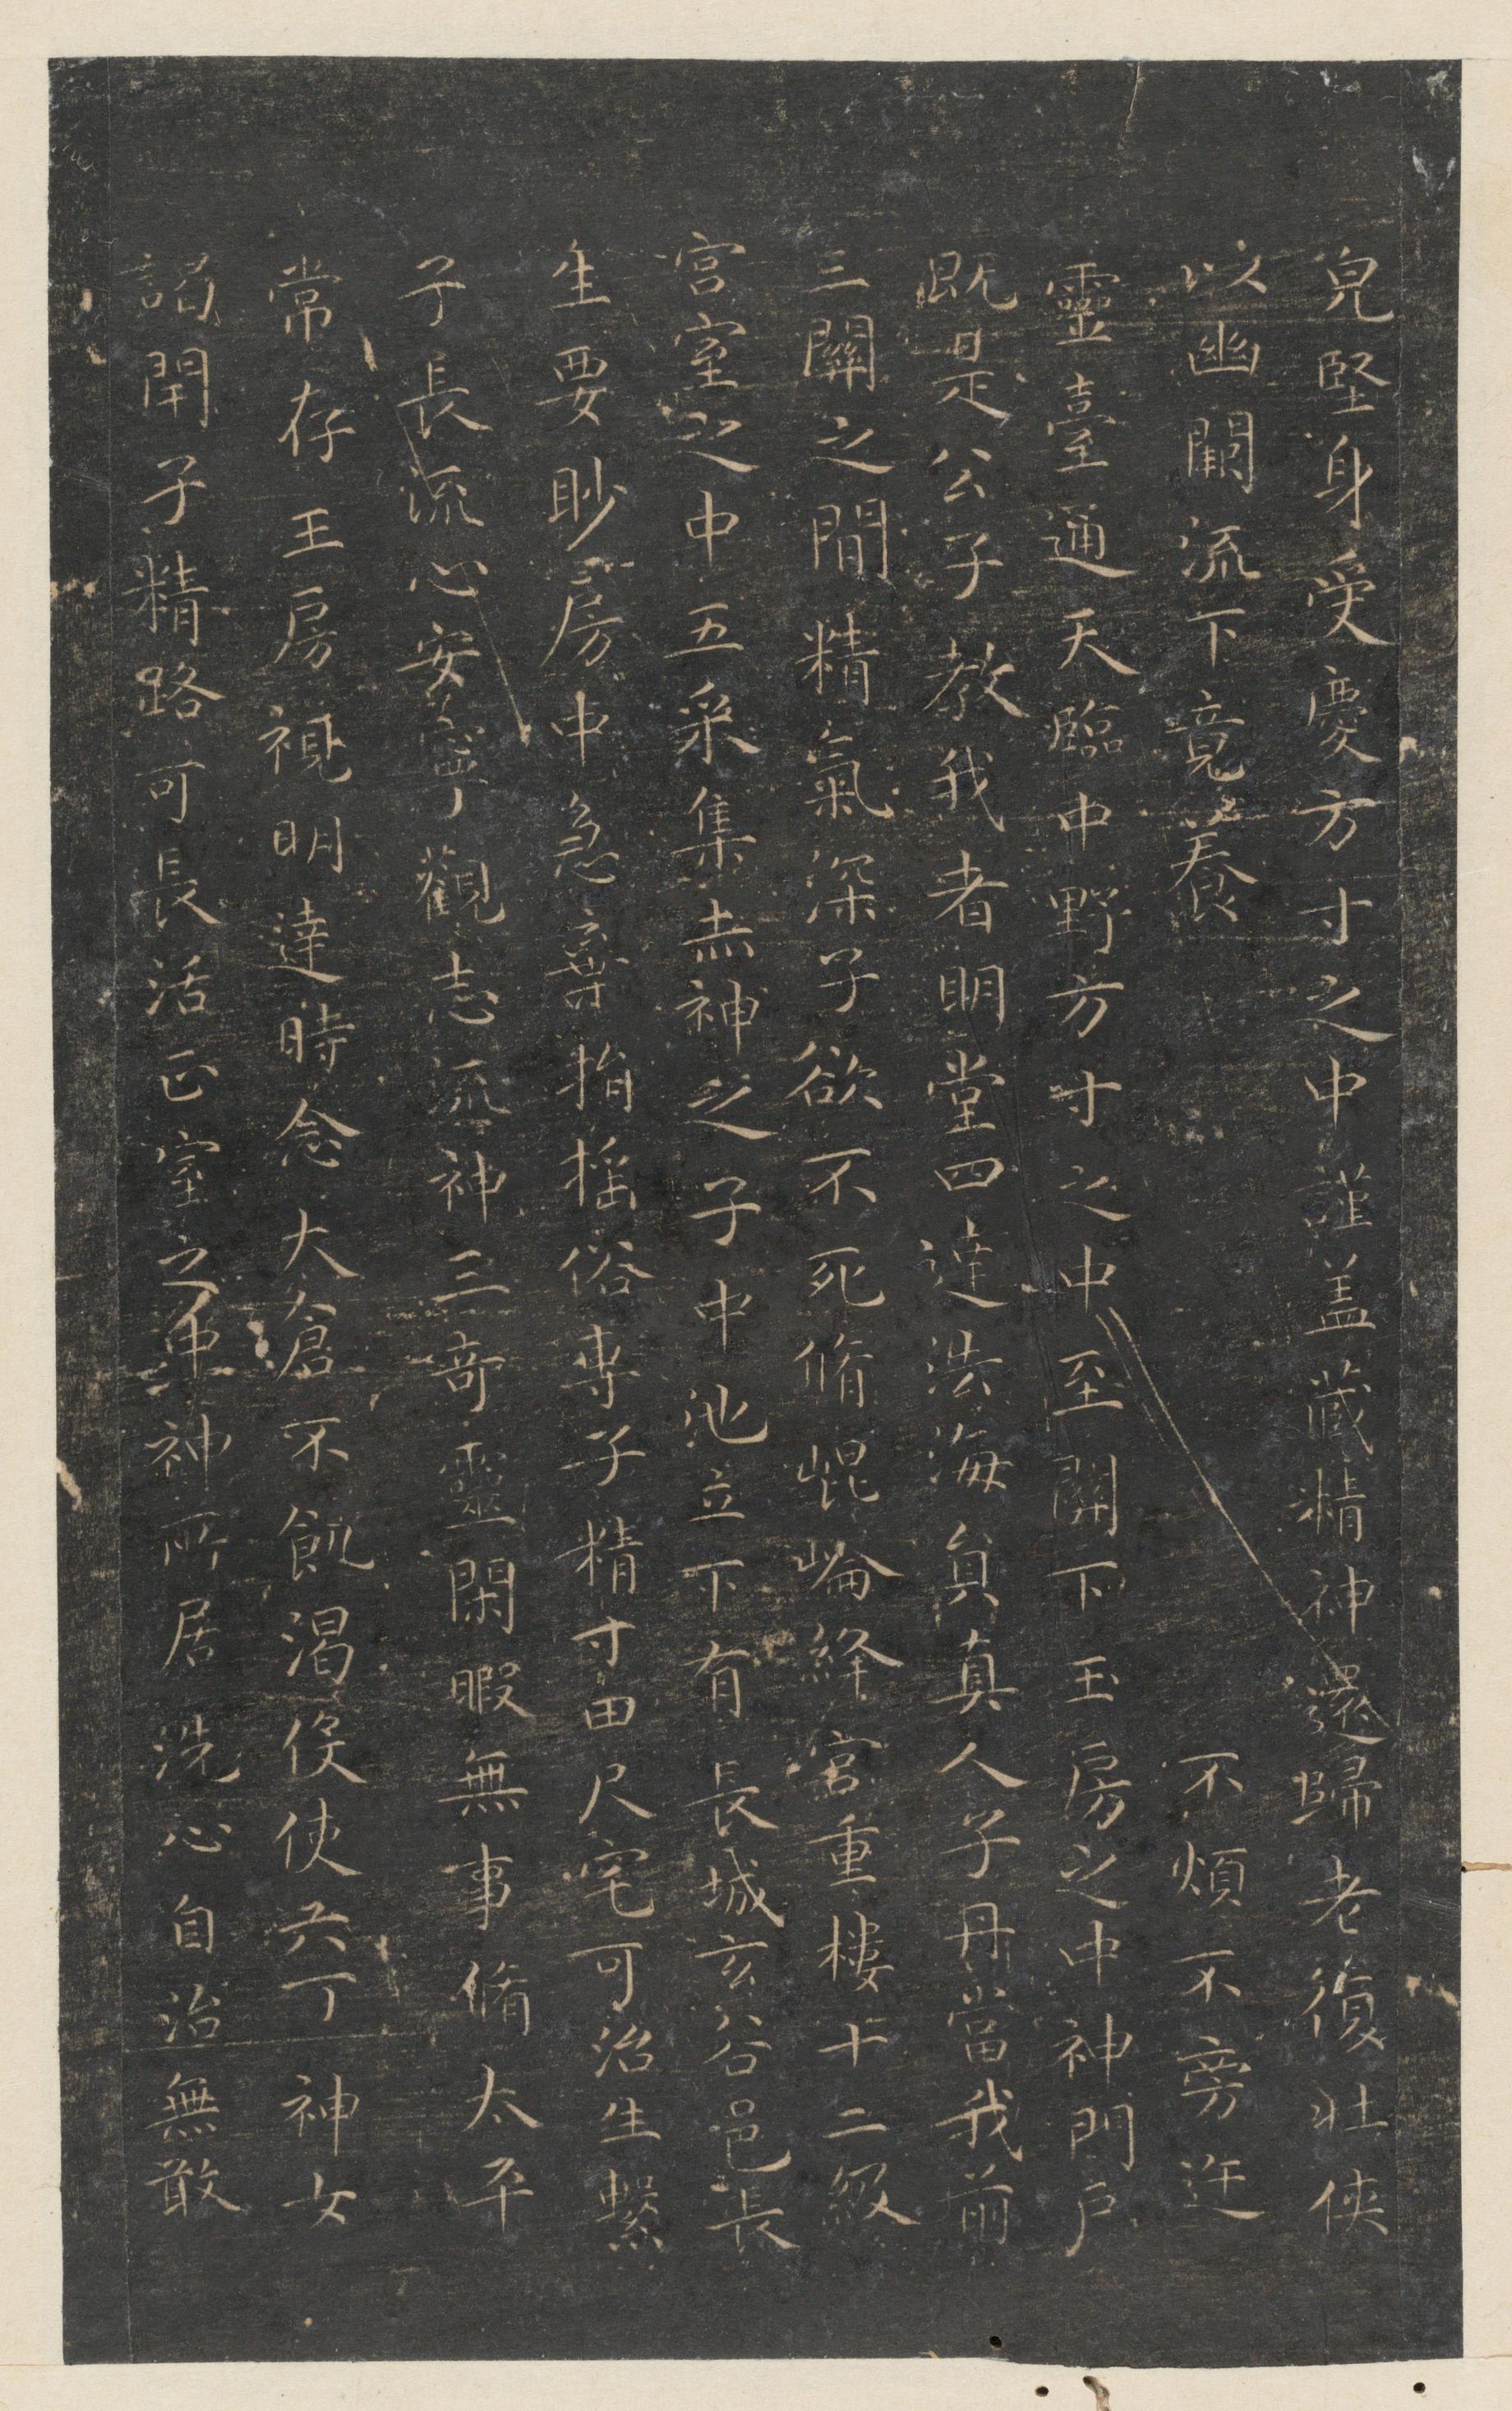 皃堅身受慶方寸之中謹盖藏精神還歸老復壯俠
以幽闕流下竟養不煩不旁迕
靈臺通天臨中野方寸之中至關下玉房之中神門戶
既是公子教我者明堂四達法海員真人子丹當我前
三關之間精氣深子欲不死脩崐崘絳宮重樓十二級
宮室之中五采集赤神之子中池立下有長城玄谷邑長
生要眇房中急棄捐摇俗專子精寸田尺宅可治生繫
子長流心安寧觀志流神三奇靈閑暇無事脩太平
常存王房視明達時念大倉不飢渴伇使六丁神女
謁閉子精路可長活正室之中神所居洗心自治無敢